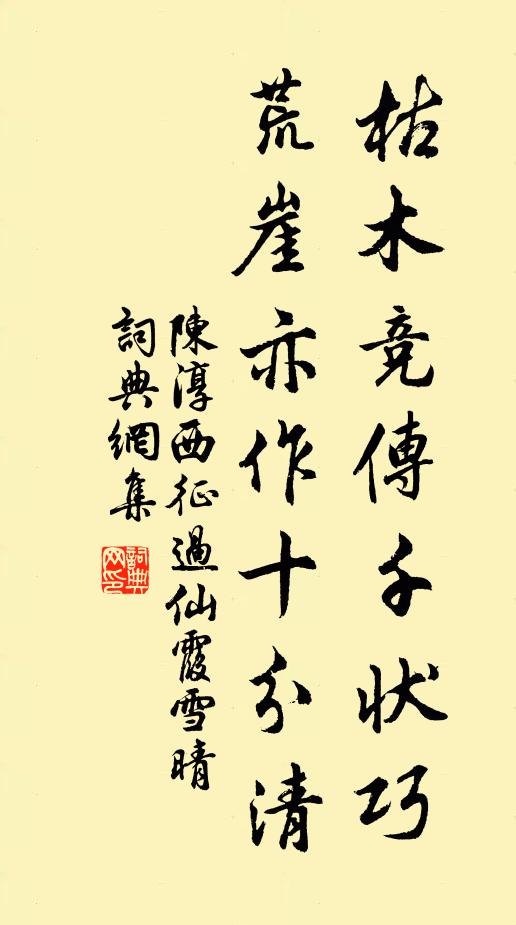 枯木竞傳千状巧
荒崖亦作十分清
陳淳西征過仙霞雪晴
詞典網集
詞典網印